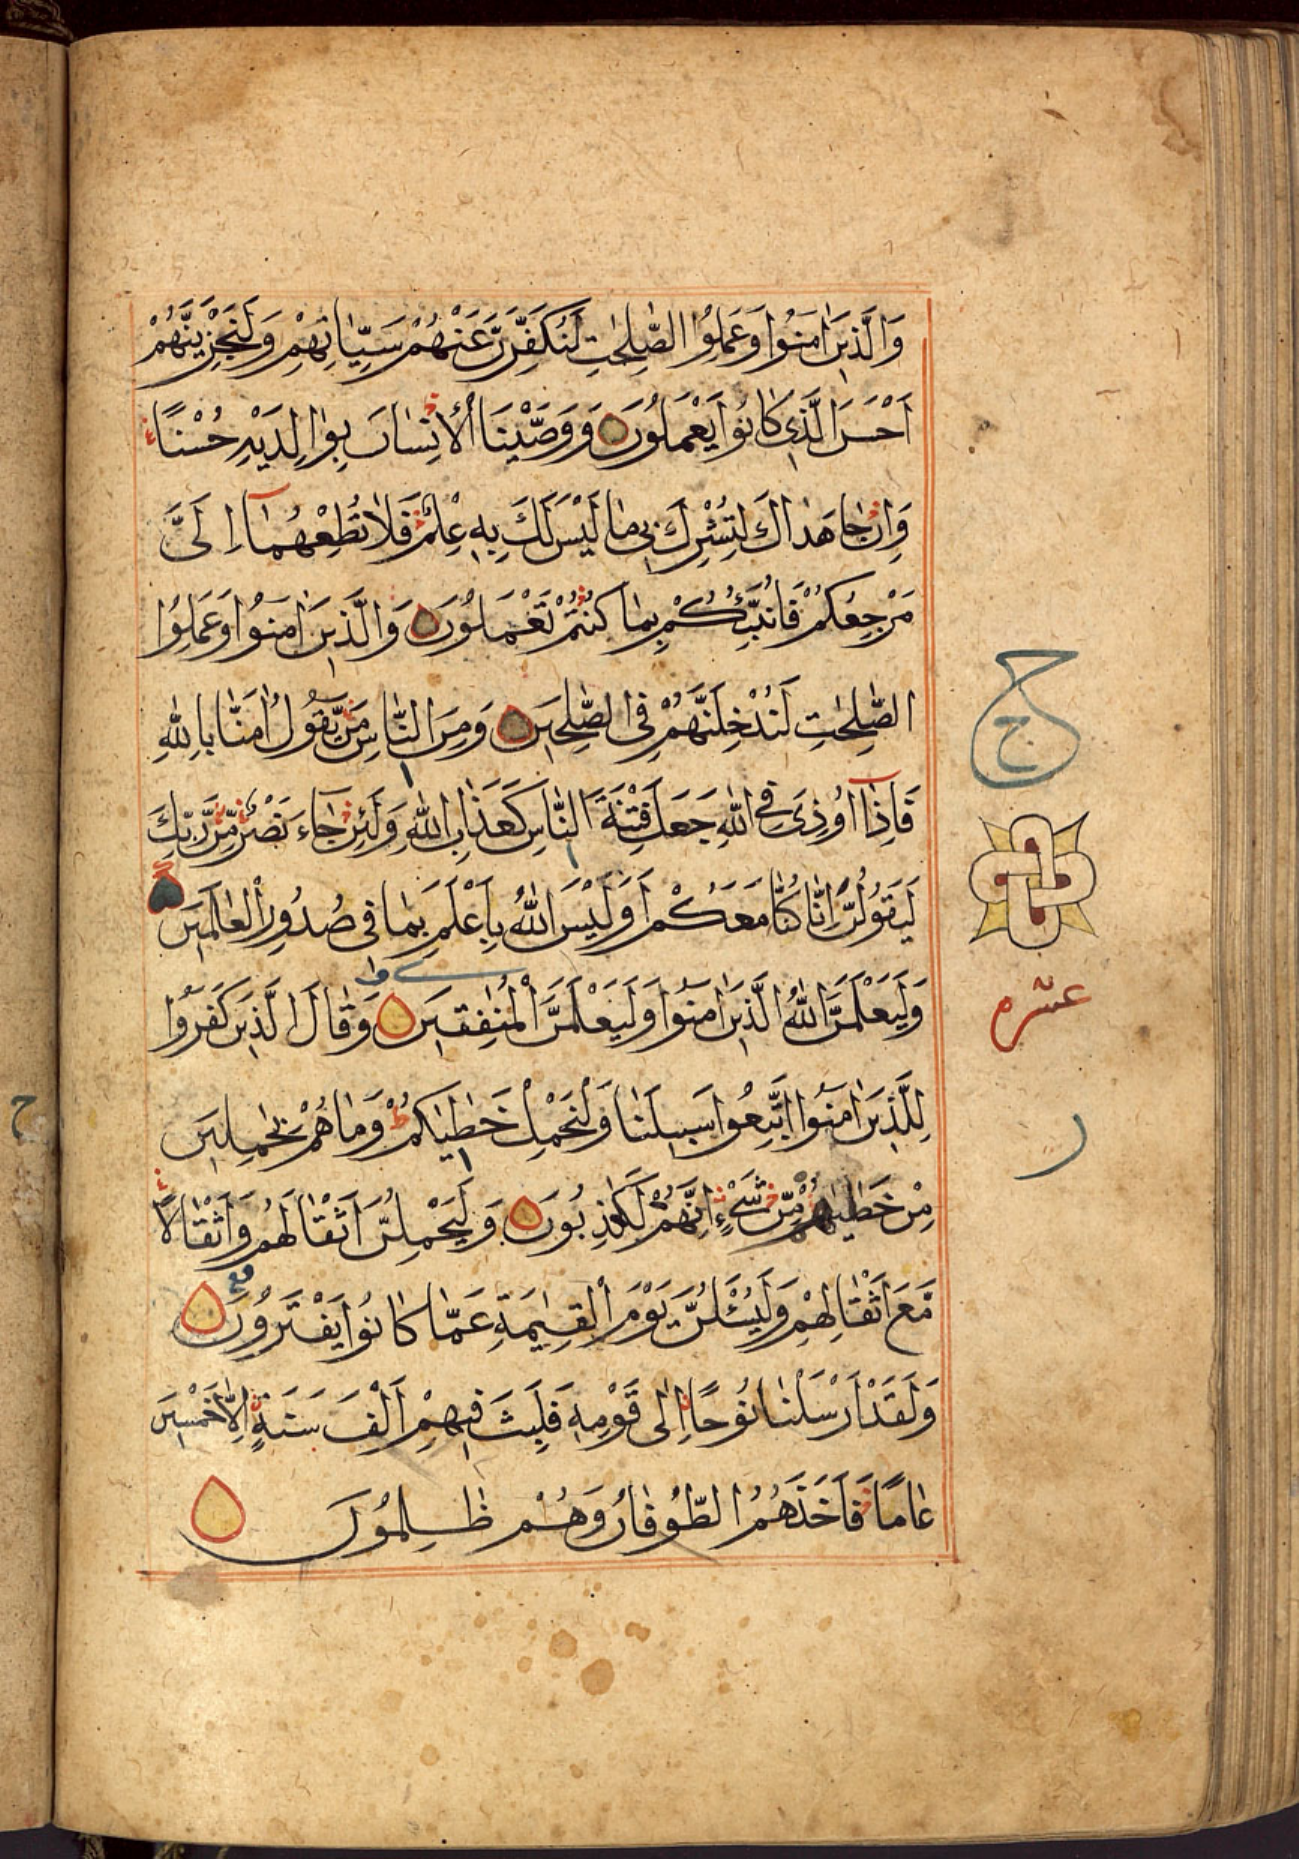 وَالَّذِينَ اٰمَنُوا وَعَمِلُوا الصّٰلِحٰتِ لَنُكَفِّرَنَّ عَنْهُمْ سَيِّاٰتِهِمْ وَلَنَجْزِيَنَّهُمْ
اَحْسَنَ الَّذِى كَانُوا يَعْمَلُونَ وَوَصَّيْنَا الْاِنْسَانَ بِوٰالِدَيْهِ حُسْنًا
وَاِنْ جَاهَدَاكَ لِتُشْرِكَ بِى مَا لَيْسَ لَكَ بِهِ عِلْمٌ فَلَا تُطِعْهُمَآ اِلَىَّ
مَرْجِعُكُمْ فَاُنَبِّئُكُمْ بِمَا كُنْتُمْ تَعْمَلُونَ وَالَّذِينَ اٰمَنُوا وَعَمِلُوا
الصّٰلِحٰتِ لَنُدْخِلَنَّهُمْ فِى الصّٰلِحِينَ وَمِنَ النَّاسِ مَنْ يَّقُولُ اٰمَنَّا بِاللّٰهِ
فَاِذَآ اُوذِىَ فِى اللّٰهِ جَعَلَ فِتْنَةَ النَّاسِ كَعَذَابِ اللّٰهِ وَلَئِنْ جَآءَ نَصْرٌ مِّنْ رَّبِّكَ
لَيَقُولُنَّ اِنَّا كُنَّا مَعَكُمْ اَوَلَيْسَ اللّٰهُ بِاَعْلَمَ بِمَا فِى صُدُورِ الْعٰالَمِينَ
وَلَيَعْلَمَنَّ اللّٰهُ الَّذِينَ اٰمَنُوا وَلَيَعْلَمَنَّ الْمُنٰفِقِينَ وَقَالَ الَّذِينَ كَفَرُوا
لِلَّذِينَ اٰمَنُوا اتَّبِعُوا سَبِيلَنَا وَلْنَحْمِلْ خَطٰيٰكُمْ وَمَا هُمْ بِحٰمِلِينَ
مِنْ خَطٰيٰهُمْ مِّنْ شَىْءٍ اِنَّهُمْ لَكٰذِبُونَ وَلَيَحْمِلُنَّ اَثْقَالَهُمْ وَاَثْقَالًا
مَّعَ اَثْقَالِهِمْ وَلَيُسْئَلُنَّ يَوْمَ الْقِيٰمَةِ عَمَّا كَانُوا يَفْتَرُونَ
وَلَقَدْ اَرْسَلْنَا نُوحًا اِلٰى قَوْمِهِ فَلَبِثَ فِيهِمْ اَلْفَ سَنَةٍ اِلَّا خَمْسِينَ
عَامًا فَاَخَذَهُمُ الطُّوفَانُ وَهُمْ ظٰلِمُونَ
ح
ج
عشره
ر
ح